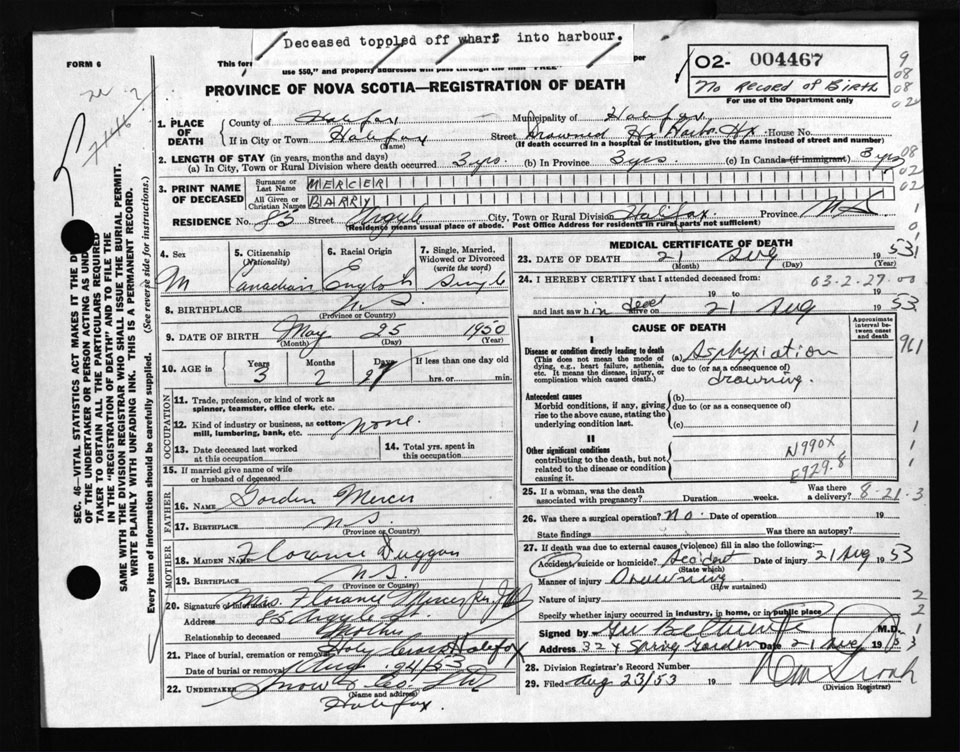 Deceased toppled off wharf into harbour.
FORM 6
This for
per
use $50," and properly addressed will pass through the mail "FREE"
02- 004467
No Record of Birth
For use of the Department only
PROVINCE OF NOVA SCOTIA—REGISTRATION OF DEATH
1. PLACE OF DEATH
County of Halifax Municipality of Halifax
If in City or Town Halifax Street Drowned Hx Harbor Hx House No.
(Name) (If death occurred in a hospital or institution, give its name instead of street and number)
2. LENGTH OF STAY (in years, months and days)
(a) In City, Town or Rural Division where death occurred 3 yrs. (b) In Province 3 yrs. (c) In Canada (if immigrant) 3 yrs
3. PRINT NAME OF DECEASED
Surname or Last Name MERCER
All Given or Christian Names BARRY
RESIDENCE No. 85 Street Argyle City, Town or Rural Division Halifax Province NS
(Residence means usual place of abode. Post Office Address for residents in rural parts not sufficient)
4. Sex
M
5. Citizenship (Nationality)
Canadian
6. Racial Origin
English
7. Single, Married, Widowed or Divorced (write the word)
Single
8. BIRTHPLACE N.S.
(Province or Country)
9. DATE OF BIRTH May 25 1950
(Month) (Day) (Year)
10. AGE in
Years Months Days
3 2 27
If less than one day old
hrs. or min.
OCCUPATION
11. Trade, profession, or kind of work as spinner, teamster, office clerk, etc.
12. Kind of industry or business, as cotton-mill, lumbering, bank, etc. none.
13. Date deceased last worked at this occupation
14. Total yrs. spent in this occupation
15. If married give name of wife or husband of deceased
FATHER
16. NAME Gorden Mercer
17. BIRTHPLACE N.S.
(Province or Country)
MOTHER
18. MAIDEN NAME Florance Duggan
19. BIRTHPLACE N.S.
(Province or Country)
20. Signature of informant Mrs. Florance Mercer
Address 85 Argyle St.
Relationship to deceased Mother
21. Place of burial, cremation or removal Holy Cross Halifax
Date of burial or removal Aug. 24/53
22. UNDERTAKER Snow & Co. Ltd
(Name and address)
Halifax.
MEDICAL CERTIFICATE OF DEATH
23. DATE OF DEATH 21 Aug 1953
(Month) (Day) (Year)
24. I HEREBY CERTIFY that I attended deceased from:
63-2-27-00
19 to 19
and last saw h im dead alive on 21 Aug 1953
CAUSE OF DEATH
Approximate interval between onset and death
I
Disease or condition directly leading to death
(This does not mean the mode of dying, e.g., heart failure, asthenia, etc. It means the disease, injury, or complication which caused death.)
(a) Asphyxiation
due to (or as a consequence of)
drowning.
Antecedent causes
Morbid conditions, if any, giving rise to the above cause, stating the underlying condition last.
(b)
due to (or as a consequence of)
(c)
II
Other significant conditions
contributing to the death, but not related to the disease or condition causing it.
N990X
E929.8
25. If a woman, was the death associated with pregnancy? Duration weeks. Was there a delivery? 8-21-3
26. Was there a surgical operation? No. Date of operation 19
State findings Was there an autopsy?
27. If death was due to external causes (violence) fill in also the following:—
Accident, suicide or homicide? Accident Date of injury 21 Aug 1953
(State which)
Manner of injury Drowning
(How sustained)
Nature of injury
Specify whether injury occurred in industry, in home, or in public place
Signed by M.D.
Address 324 Spring Garden Date 21 Aug 1953
28. Division Registrar's Record Number
29. Filed Aug 23/53 19
(Division Registrar)
SEC. 46—VITAL STATISTICS ACT MAKES IT THE DU
OF THE UNDERTAKER OR PERSON ACTING AS UND
TAKER TO OBTAIN ALL THE PARTICULARS REQUIRED
IN THE "REGISTRATION OF DEATH" AND TO FILE THE
SAME WITH THE DIVISION REGISTRAR WHO SHALL ISSUE THE BURIAL PERMIT.
WRITE PLAINLY WITH UNFADING INK. THIS IS A PERMANENT RECORD.
Every item of information should be carefully supplied. (See reverse side for instructions.)